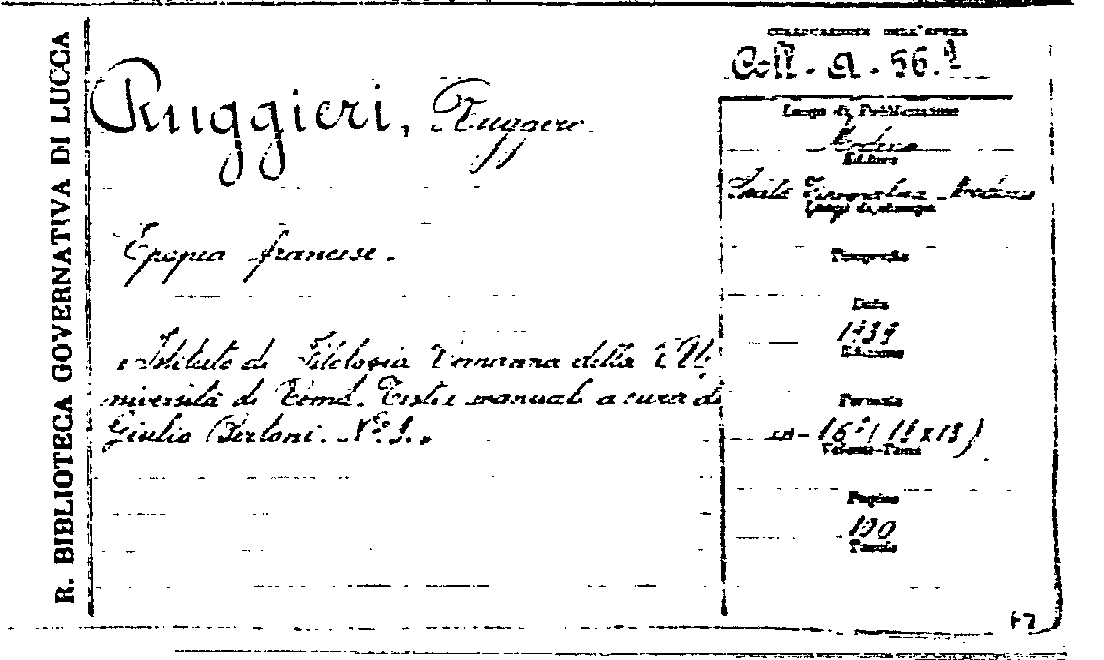 R. BIBLIOTECA GOVERNATIVA DI LUCCA
COLLOCAZIONE DELL'OPERA
Coll. a. 56.
Ruggieri, Ruggero.
Epopea francese.
"Istituto di Filologia Romanza della R. U-
niversità di Roma. Testi e manuali a cura di
Giulio Bertoni. N.°
Luogo di Pubblicazione
Modena
Editore
Società Tipografica Modenese
Luogo di stampa
Tipografia
Data
1939
Edizione
Formato
in-16° (
Volume-Tomo
Pagine
190
Tavole